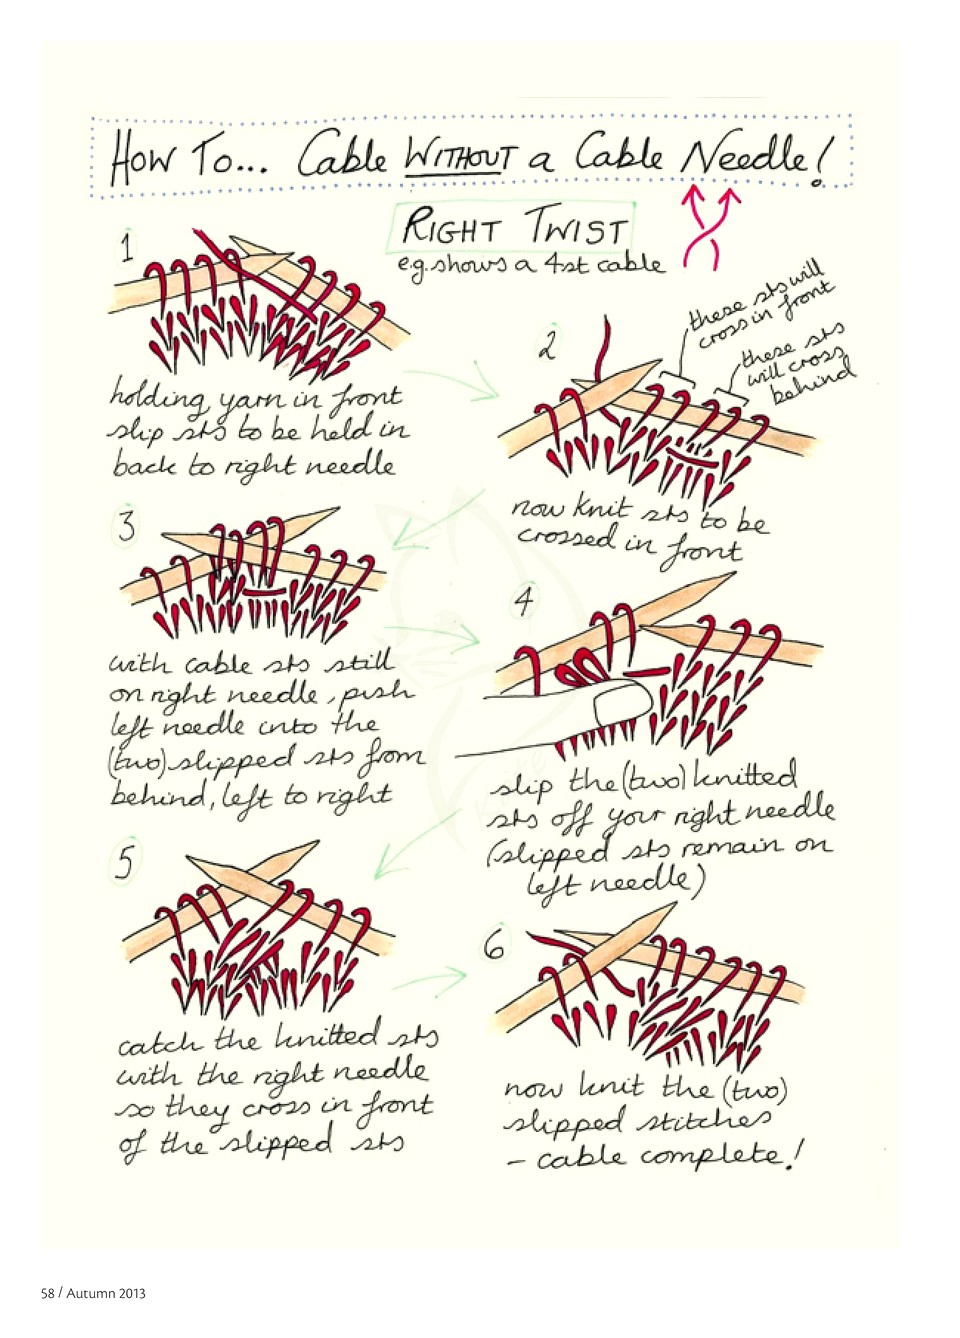 How To... Cable WITHOUT a Cable Needle!
RIGHT TWIST
e.g. shows a 4st cable
1
holding yarn in front
slip sts to be held in
back to right needle
2
these sts will
cross in front
these sts
will cross
behind
now knit sts to be
crossed in front
3
with cable sts still
on right needle, push
left needle into the
(two) slipped sts from
behind, left to right
4
slip the (two) knitted
sts off your right needle
(slipped sts remain on
left needle)
5
catch the knitted sts
with the right needle
so they cross in front
of the slipped sts
6
now knit the (two)
slipped stitches
- cable complete!
58 / Autumn 2013